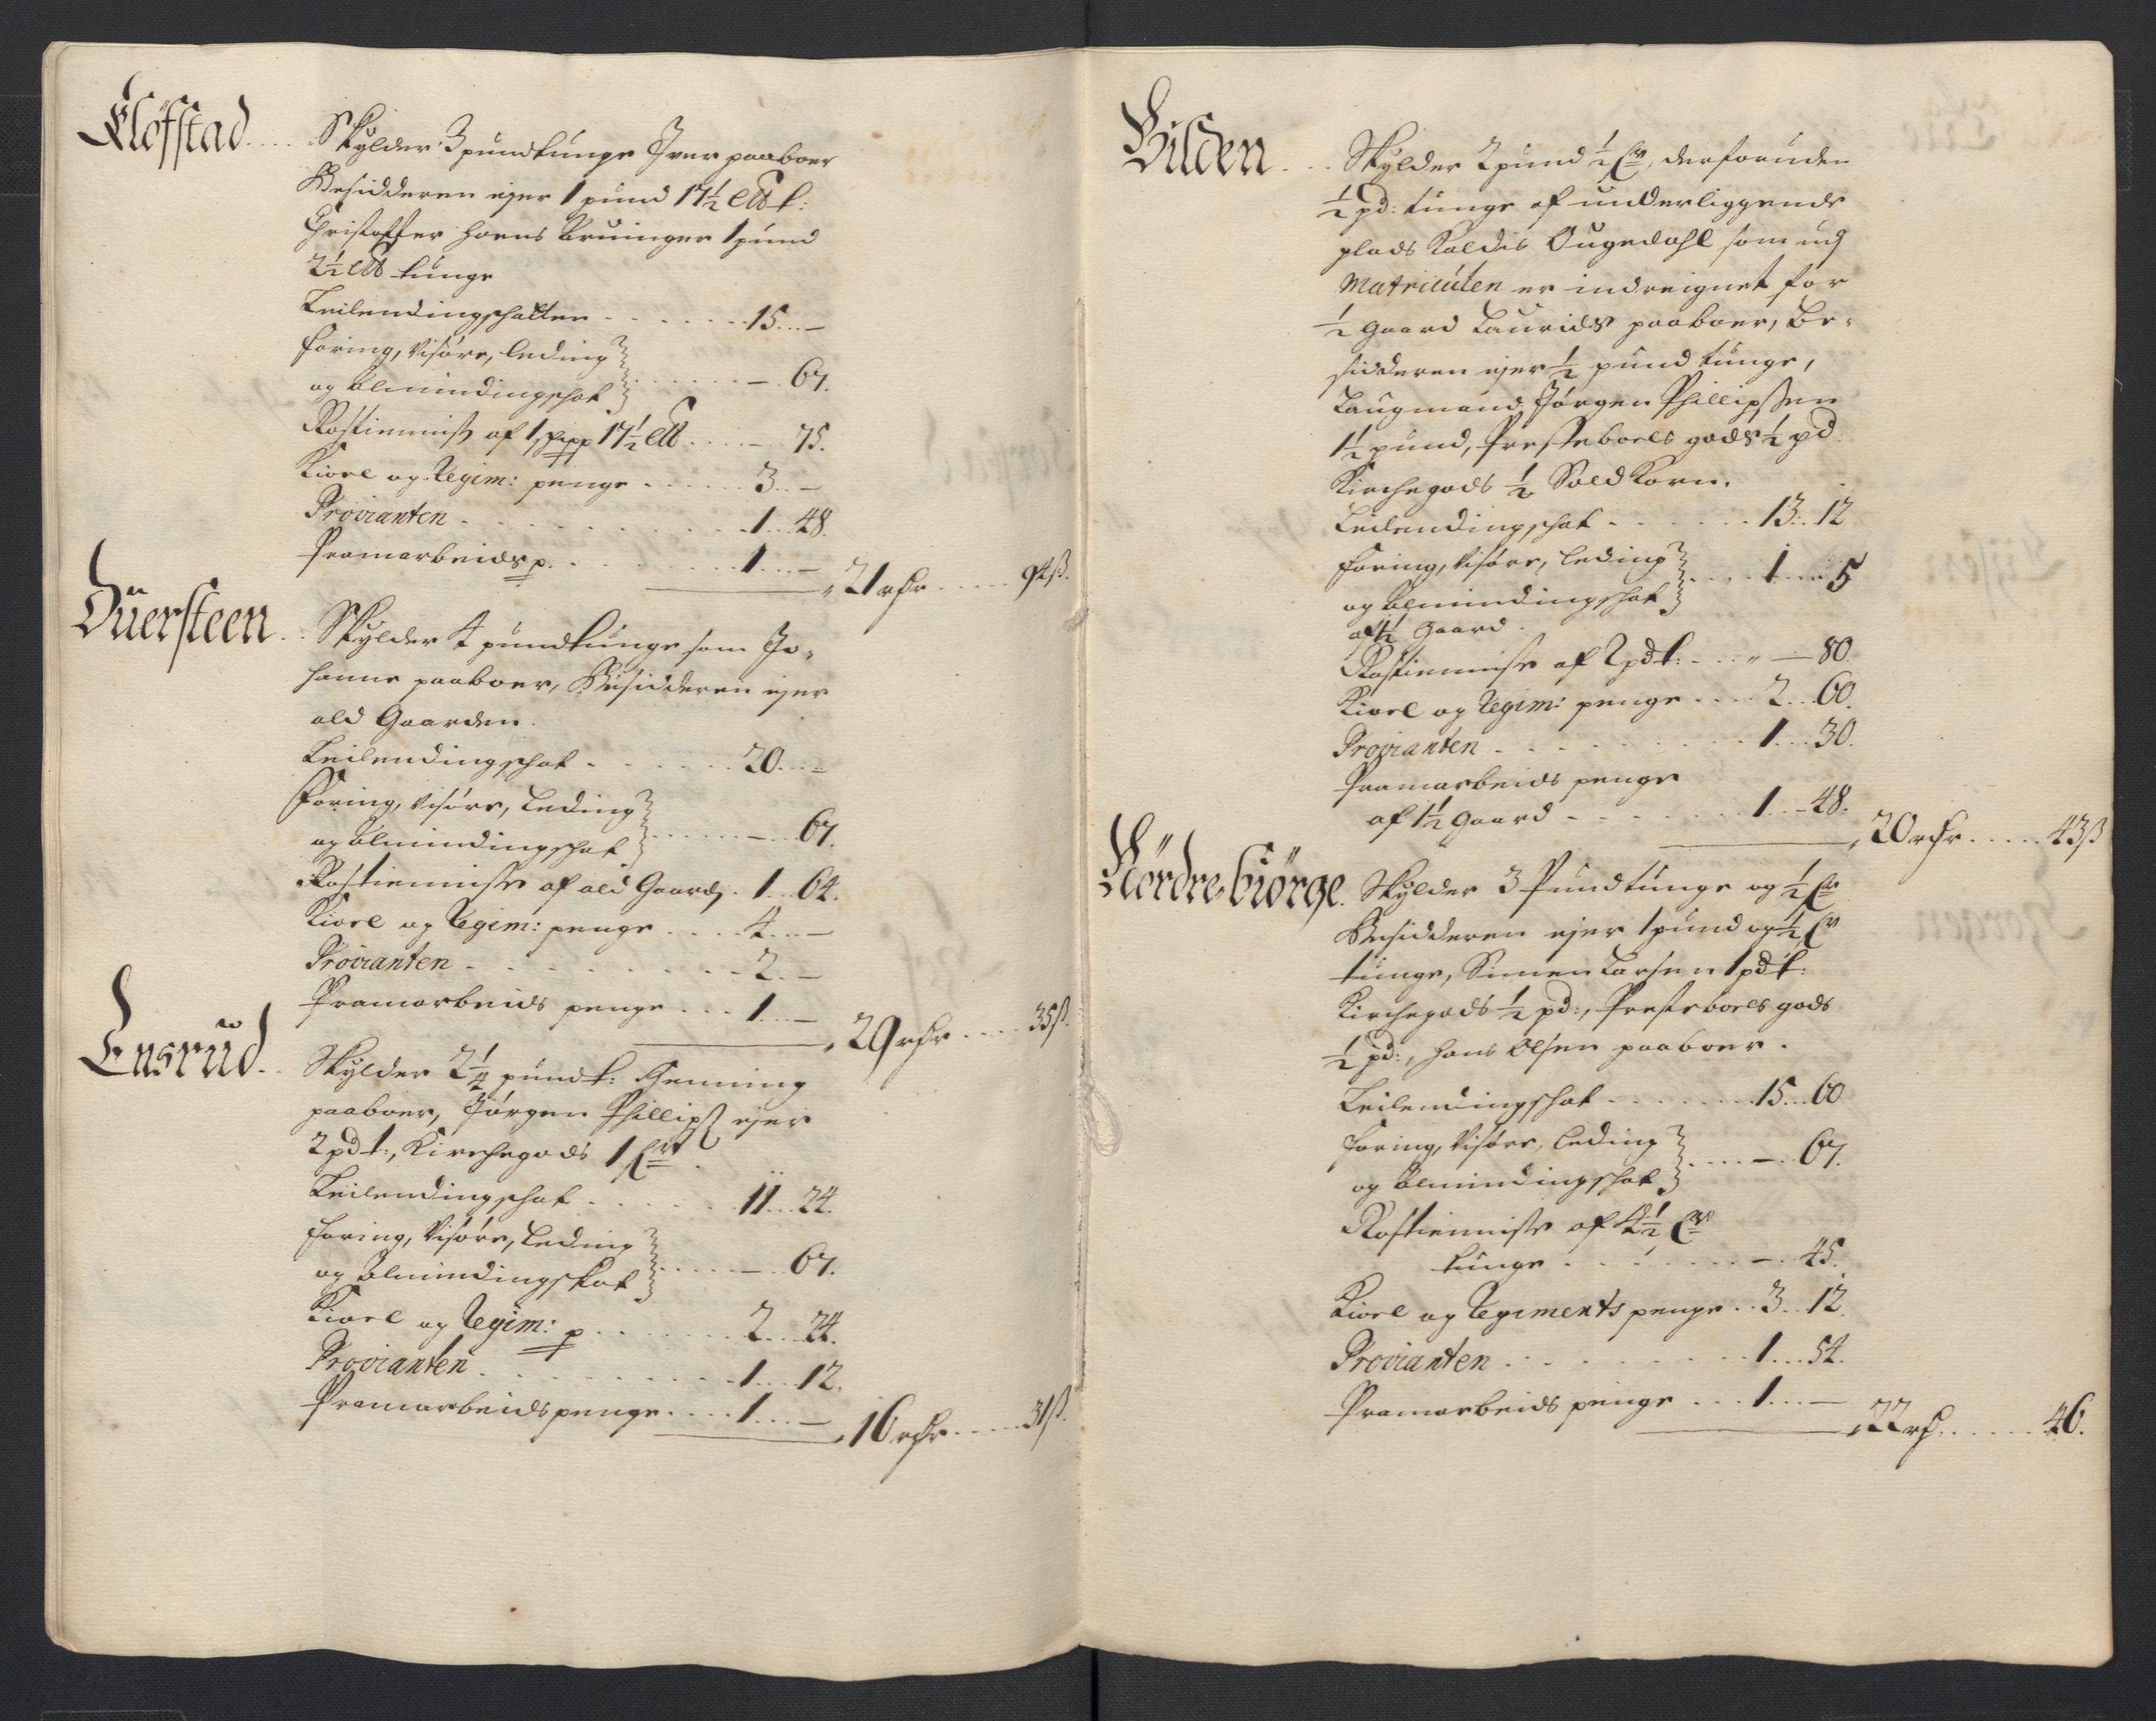 Kløfstad.... Skylder 3 pundtunge Iver paaboer
Besidderen ejer 1 pund 17½ L℔ t:
Christoffer Hoens Arvinger 1 pund
2½ L℔ tunge
Leilendingschatten - - - 15...—
Foring, Visøre, Leding
og Almindingschat } - - - —. 67.
Rostienniste af 1 schpp 17½ L℔ ... — 75.
Kiøre og Regim: penge ..... 3...—
Provianten ...... 1...48.
Pramarbeids p. ..... 1...—
21 rdr .... 94 ß.
Duersteen.. Skylder 4 pundtunge som Jo-
hanne paaboer, Besidderen ejer
ald Gaarden.
Leilendingschat - - - 20...—
Foring, Visøre, Leding
og Almindingschat } ...... —..67.
Rostienniste af ald Gaard. 1...64.
Kiøre og Regim: penge .... 4...—
Provianten ...... 2.—
Pramarbeids penge ... 1...—
29 rdr .... 35 ß.
Ensrud.. Skylder 2¼ pund t: Henning
paaboer, Jørgen Phillipß ejer
2 pd t:, Kirchegods 1 fr
Leilendingschat ..... 11...24.
Foring, Visøre, Leding
og Almindingskat } ..... —. 67.
Kiøre og Regim: p ...... 2...24.
Provianten ....... 1...12.
Pramarbeidspenge .... 1...—
16 rdr .... 31 ß.
Vilden... Skylder 2 pund ½ fr, desforuden
½ pd: tunge af underliggende
plads Kaldis Ougedahl som udj
Matriculen er indreignet for
½ gaard Laurids paaboer, Be-
sidderen ejer ½ pund tunge,
Laugmand Jørgen Phillipsen
1½ pund, Presteboels gods ½ pd.
Kirchegods ½ Sold Korn.
Leilendingschat ..... 13...12
Foring, Visøre, Leding
og Almindingschat } .... 1...5
af 1½ Gaard.
Rostienniste af 2 pd t: ... — 80.
Kiøre og Regim: penge .... 2...60.
Provianten ....... 1...30.
Pramarbeids penge
af 1½ gaard ...... 1...48.
20 rdr .... 43 ß
Nördre biørge. Skylder 3 Pundtunge og ½ fr
Besidderen ejer 1 pund og ½ fr
tunge, Simen Larsen 1 pd t:
Kirchegods ½ pd:, Presteboels gods
½ pd:, Hans Olsen paaboer.
Leilendingschat ...... 15...60
Foring, Visøre, Leding
og Almindingschat } .... —. 67.
Rostienniste af 4½ fr
tunge ...... —. 45.
Kiøre og Regiments penge .. 3...12.
Provianten ...... 1...54.
Pramarbeids penge ... 1...—
22 rd ...... 46.